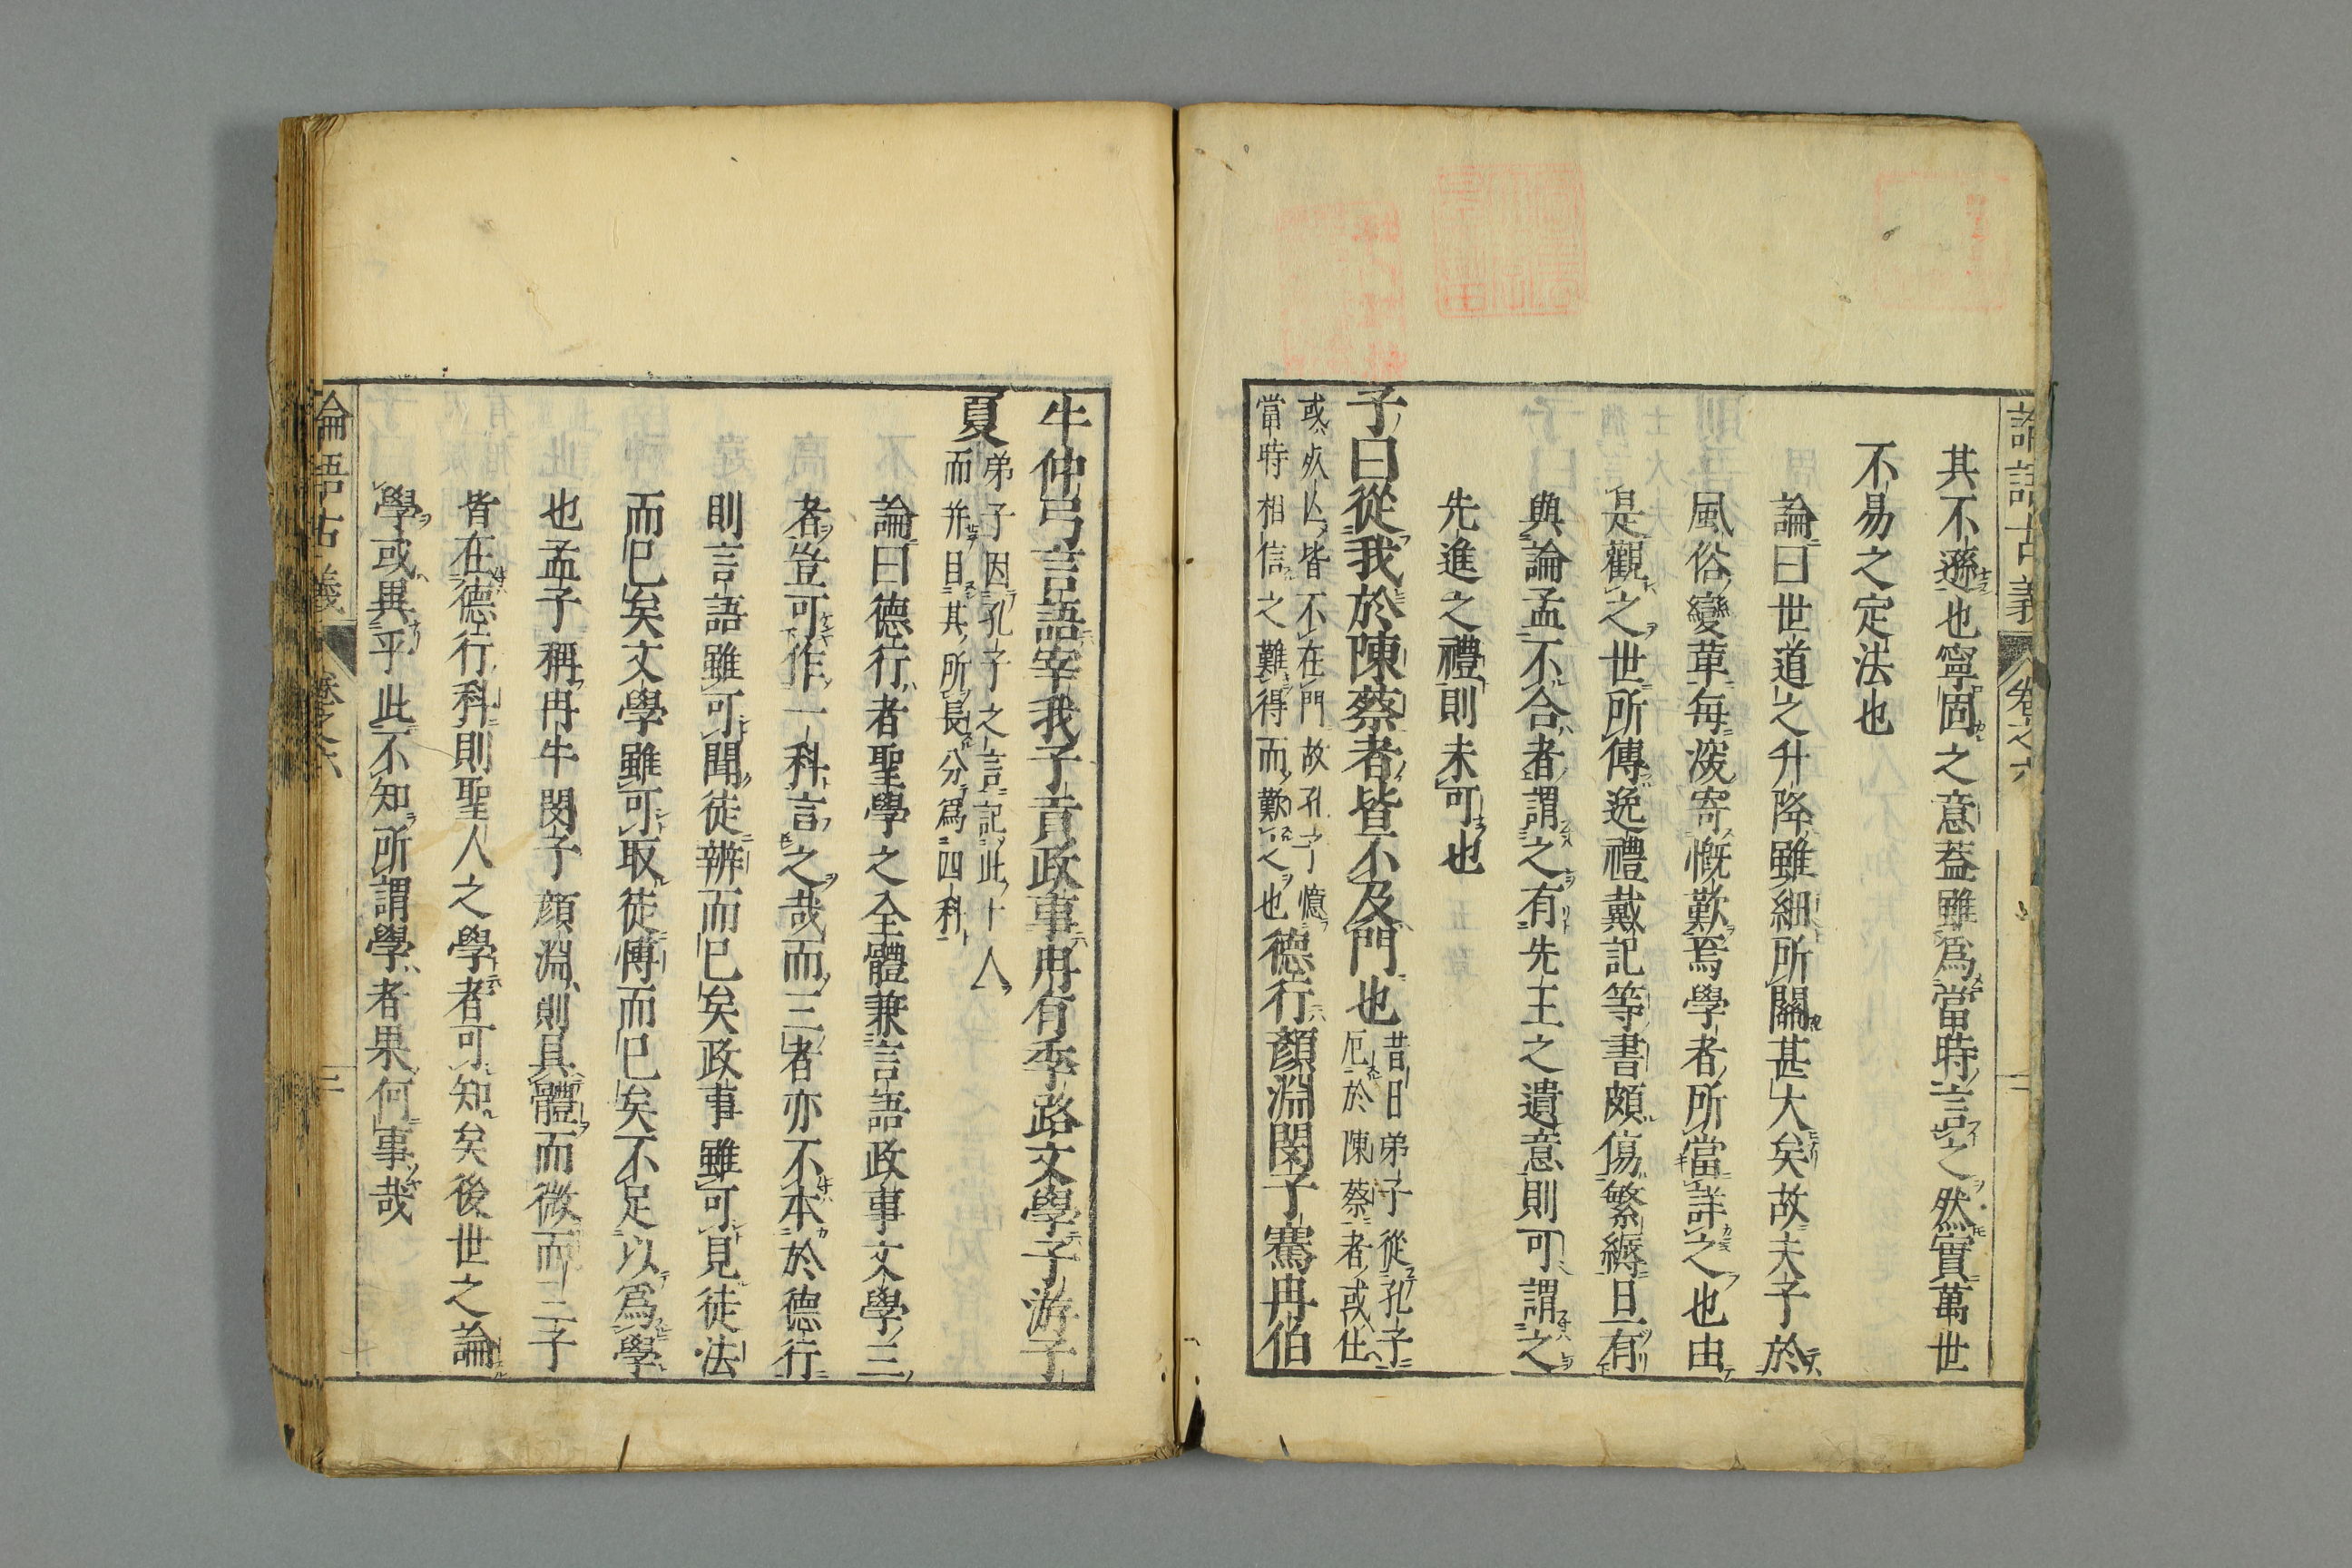 論語古義 卷之六 二
其不遜也寧固之意葢雖爲當時言之然實萬世
不易之定法也
論曰世道之升降雖細所關甚大矣故夫子於
風俗變革每深寄慨歎焉學者所當詳之也由
是觀之世所傳逸禮戴記等書頗傷繁縟且有
與論孟不合者謂之有先王之遺意則可謂之
先進之禮則未可也
子曰從我於陳蔡者皆不及門也
昔日弟子從孔子
厄於陳蔡者或仕
或疾亾皆不在門故孔子憶
當時相信之難得而歎之也
德行顏淵閔子騫冉伯
牛仲弓言語宰我子貢政事冉有季路文學子游子
夏
弟子因孔子之言記此十人
而并目其所長分爲四科
論曰德行者聖學之全體兼言語政事文學三
者豈可作一科言之哉而三者亦不本於德行
則言語雖可聞徒辨而已矣政事雖可見徒法
而已矣文學雖可取徒博而已矣不足以爲學
也孟子稱冉牛閔子顏淵則具體而微而二子
皆在德行科則聖人之學者可知矣後世之論
學或異乎此不知所謂學者果何事哉
論語古義 卷之六 三